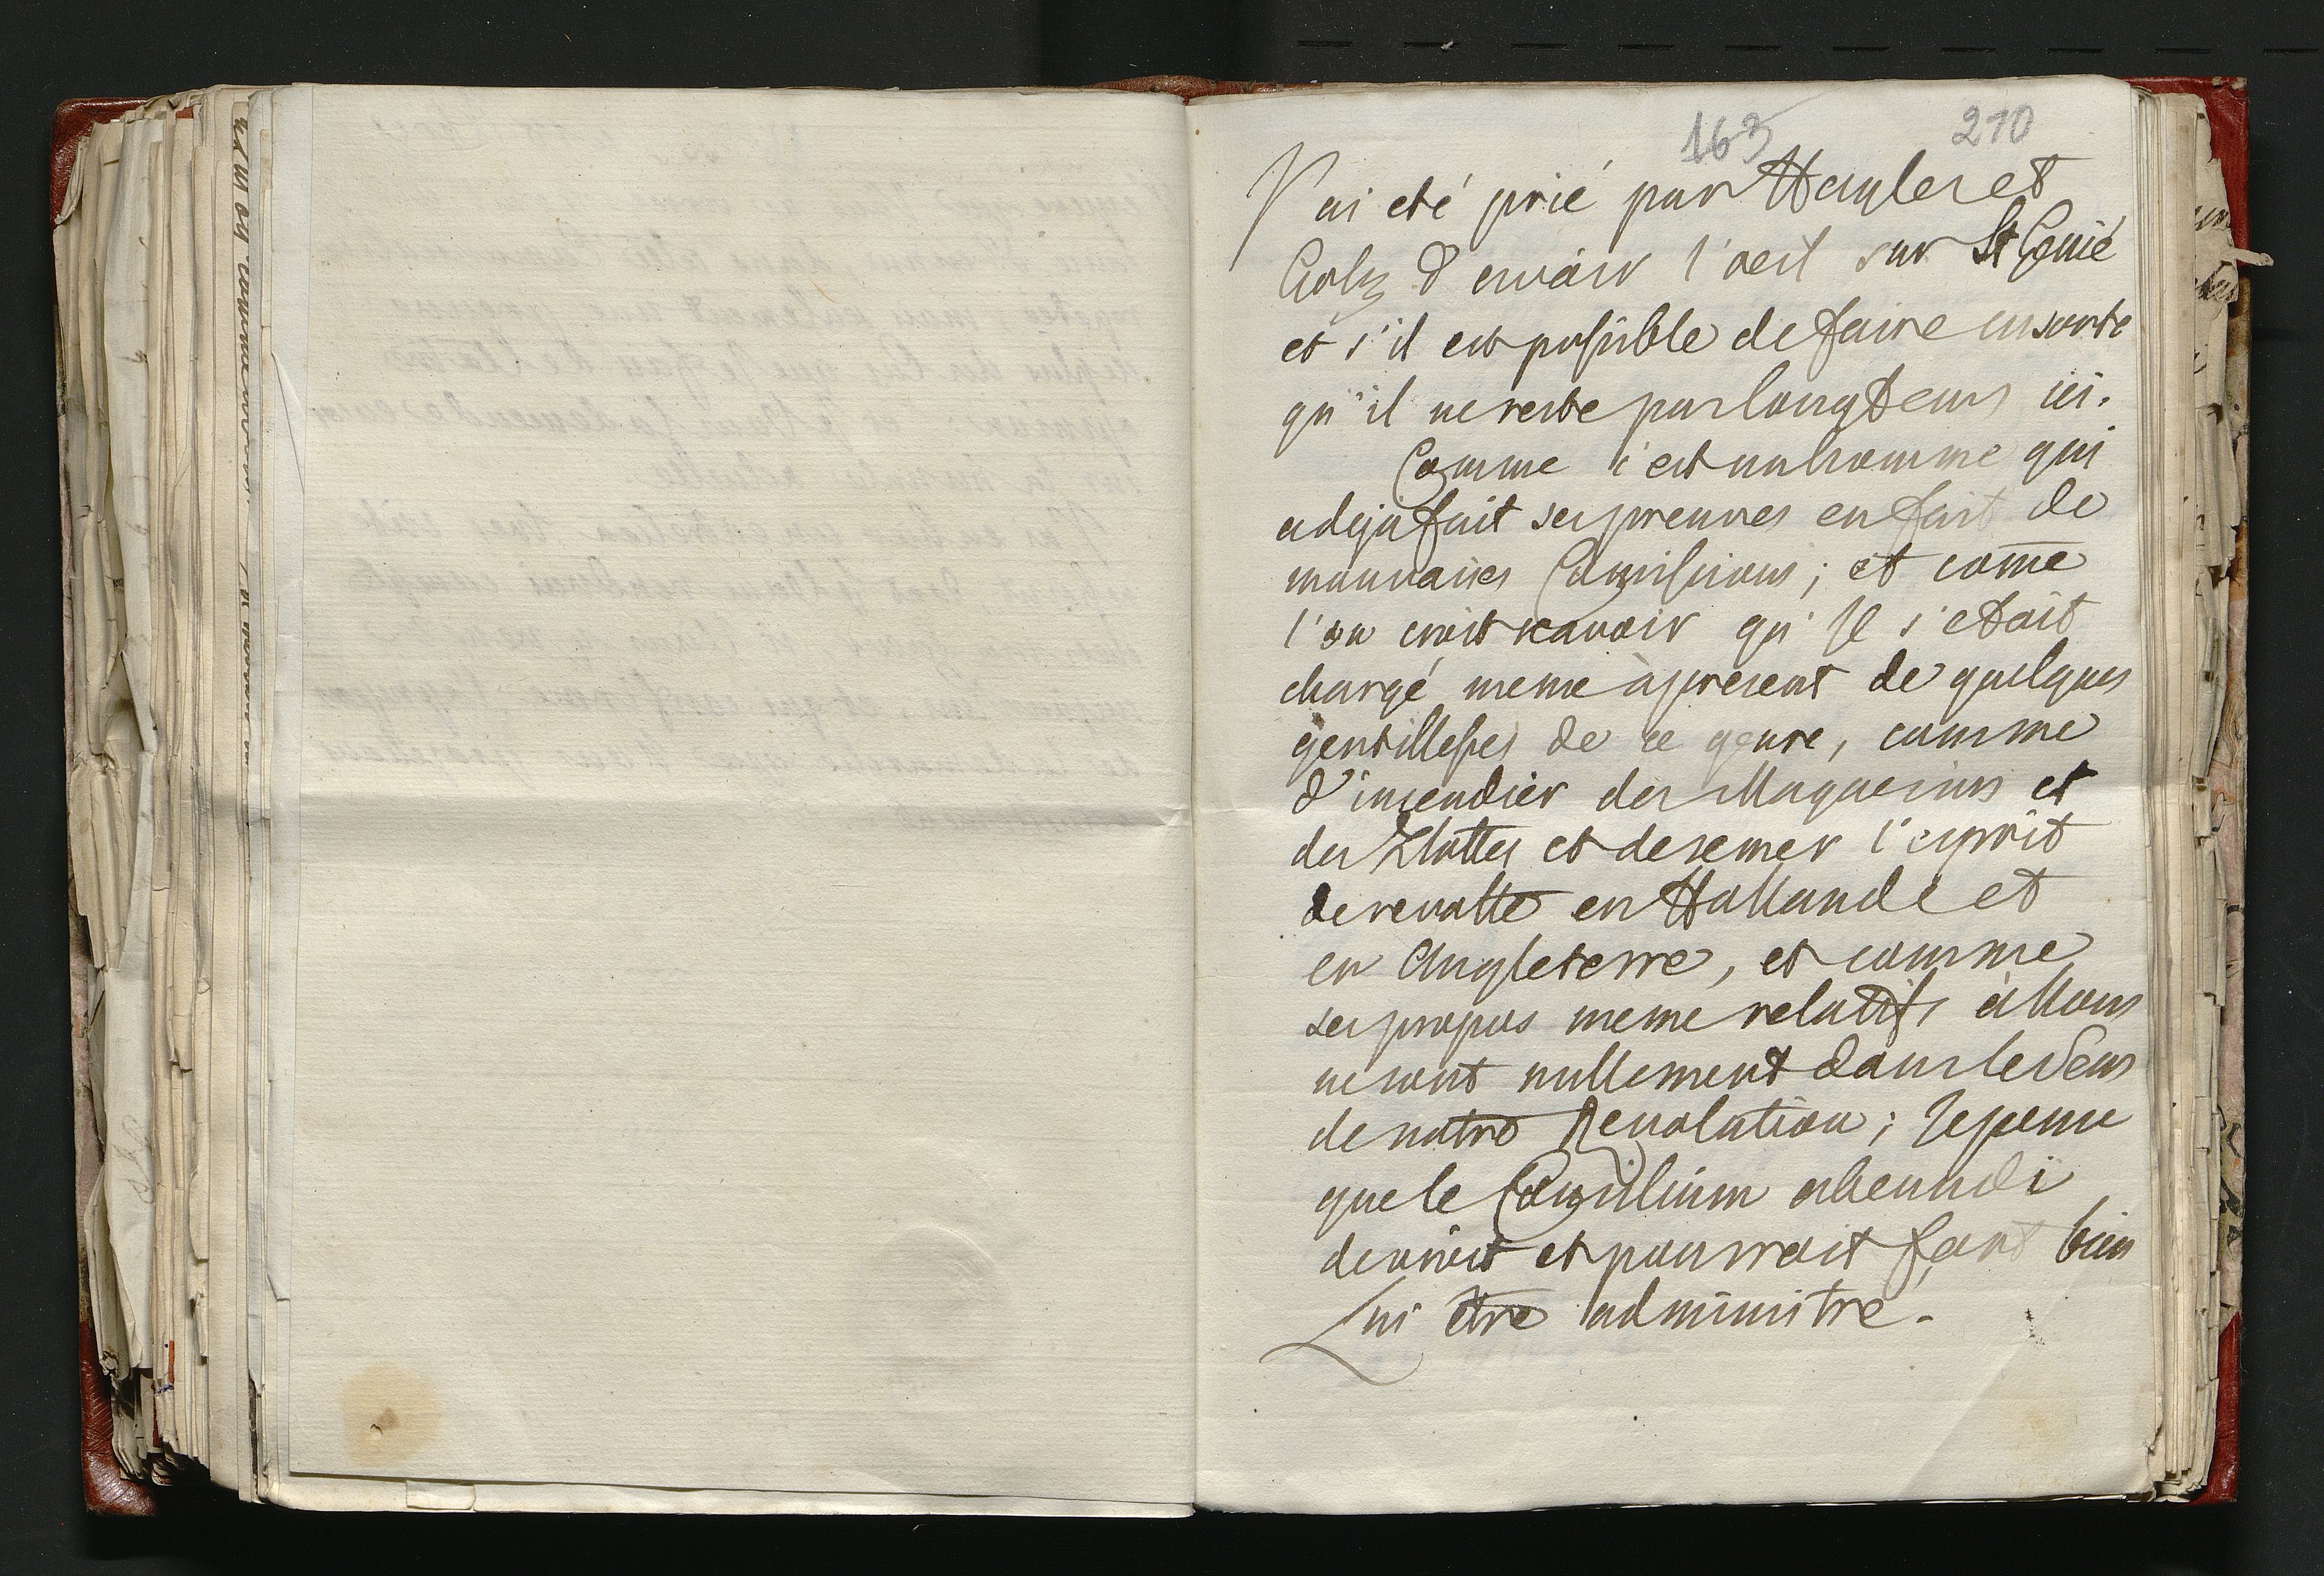 163 210
J'ai eté prié par Hayles et
Goltz d'avoir l'oeil sur St Genié
et s'il est possible de faire ensorte
qu'il ne reste pas longtems ici.
Comme c'est un homme qui
a deja fait ses preuves en fait de
mauvaises Comissions; et come
l'on croit scavoir qu'Il s'etoit
chargé meme àpresent de quelques
gentillesses de ce genre, comme
d'incendier des Magaesins et
des Flottes et desemer l'esprit
de revolte en Hollande et
en Angleterre, et comme
ses propos meme relatifs à Nous
ne sont nullement dans le Sens
de notre Revolution; Je pense
que le Consilium abeundi
devroit et pourroit fort bien
Lui être administre.